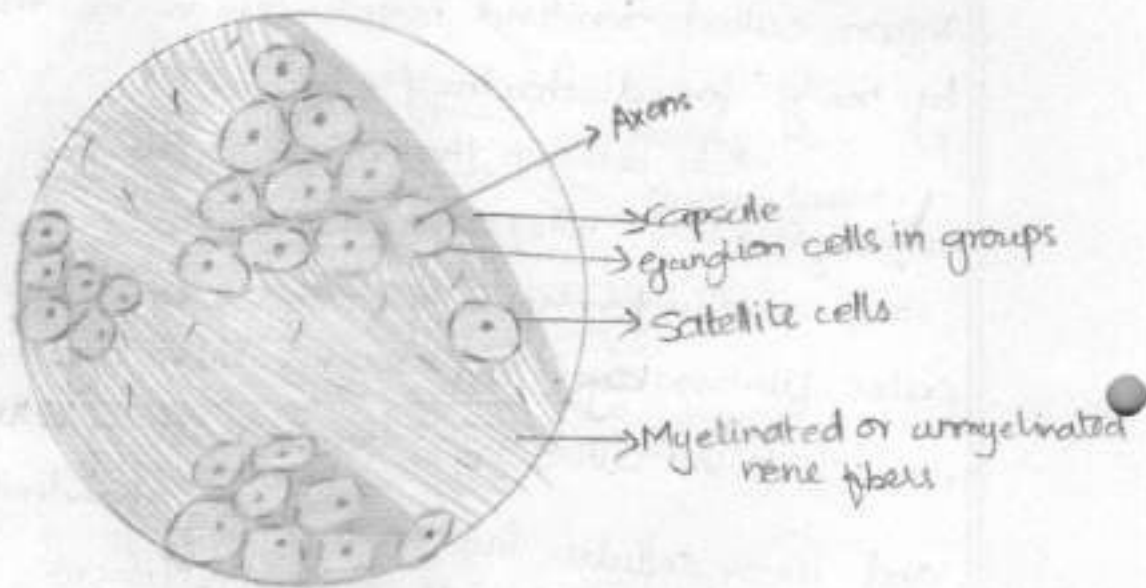 Axons
Capsule
Ganglion cells in groups
Satellite cells
Myelinated or unmyelinated
nerve fibers